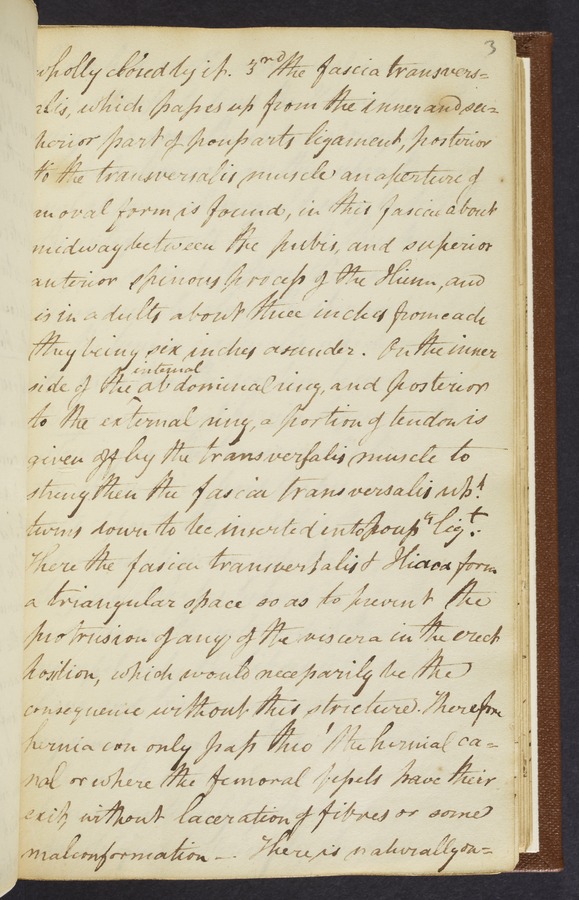 3
wholly closed by it. 3rd the fascia transvers=
alis, which passes up from the inner and su=
perior part of pouparts ligament, posterior
to the transversalis muscle an aperture of
an oval form is found, in this fasciae about
midway between the pubis, and superior
anterior spinous process of the Ilium, and
is in adults about three inches from each
they being six inches asunder. On the inner
side of the internal abdominal ring, and posterior
to the external ring, a portion of tendon is
given off by the transversalis muscle to
strengthen the fascia transversalis wh:
turns down to be inserted into poupts ligt.
There the fascia transversalis & Iliaca form
a triangular space so as to prevent the
protrusion of any of the viscera in the erect
position, which would necessarily be the
consequence without this stricture. Therefore
hernia can only pass thro' the hernial ca=
nal or where the femoral vessels have their
exit, without laceration of fibres or some
malconformation —. There is naturally